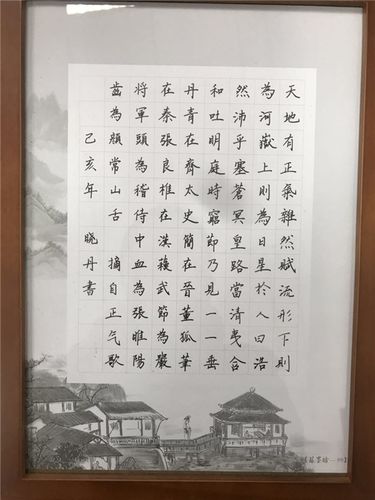 天地有正氣雜然賦流形下則
為河嶽上則為日星於人曰浩
然沛乎塞蒼冥皇路當清夷含
和吐明庭時窮節乃見一一垂
丹青在齊太史簡在晉董狐筆
在秦張良椎在漢蘓武節為嚴
將軍頭為稽侍中血為張睢陽
齒為顏常山舌 摘自正气歌
己亥年 晓丹書